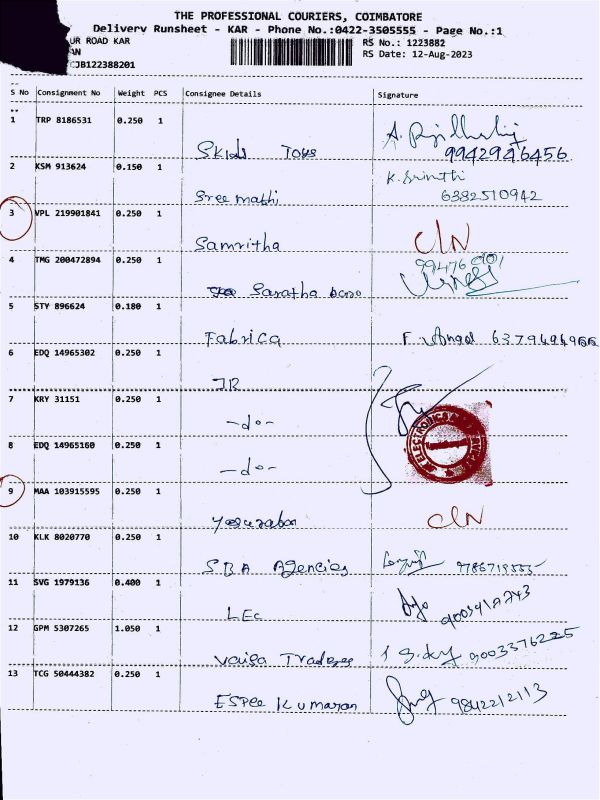 THE PROFESSIONAL COURIERS, COIMBATORE
Delivery Runsheet - KAR - Phone No.:0422-3505555 - Page No.:1
UR ROAD KAR RS No.: 1223882
AN RS Date: 12-Aug-2023
CJB122388201
S No Consignment No Weight PCS Consignee Details Signature
1 TRP 8186531 0.250 1
9942946456
2 KSM 913624 0.150 1 K. Srinthi
Sree mathi 6382510942
3 VPL 219901841 0.250 1
Samritha CIN
4 TMG 200472894 0.250 1
Saratha
5 STY 896624 0.180 1
Fabrica F. Angel
6 EDQ 14965302 0.250 1
JR
7 KRY 31151 0.250 1
-do-
8 EDQ 14965160 0.250 1
-do-
9 MAA 103915595 0.250 1
CIN
10 KLK 8020770 0.250 1
SBA Agencies
11 SVG 1979136 0.400 1
LEC
12 GPM 5307265 1.050 1
Vaiga Traders 9003376225
13 TCG 50444382 0.250 1
Espee Kumaran 9842212113